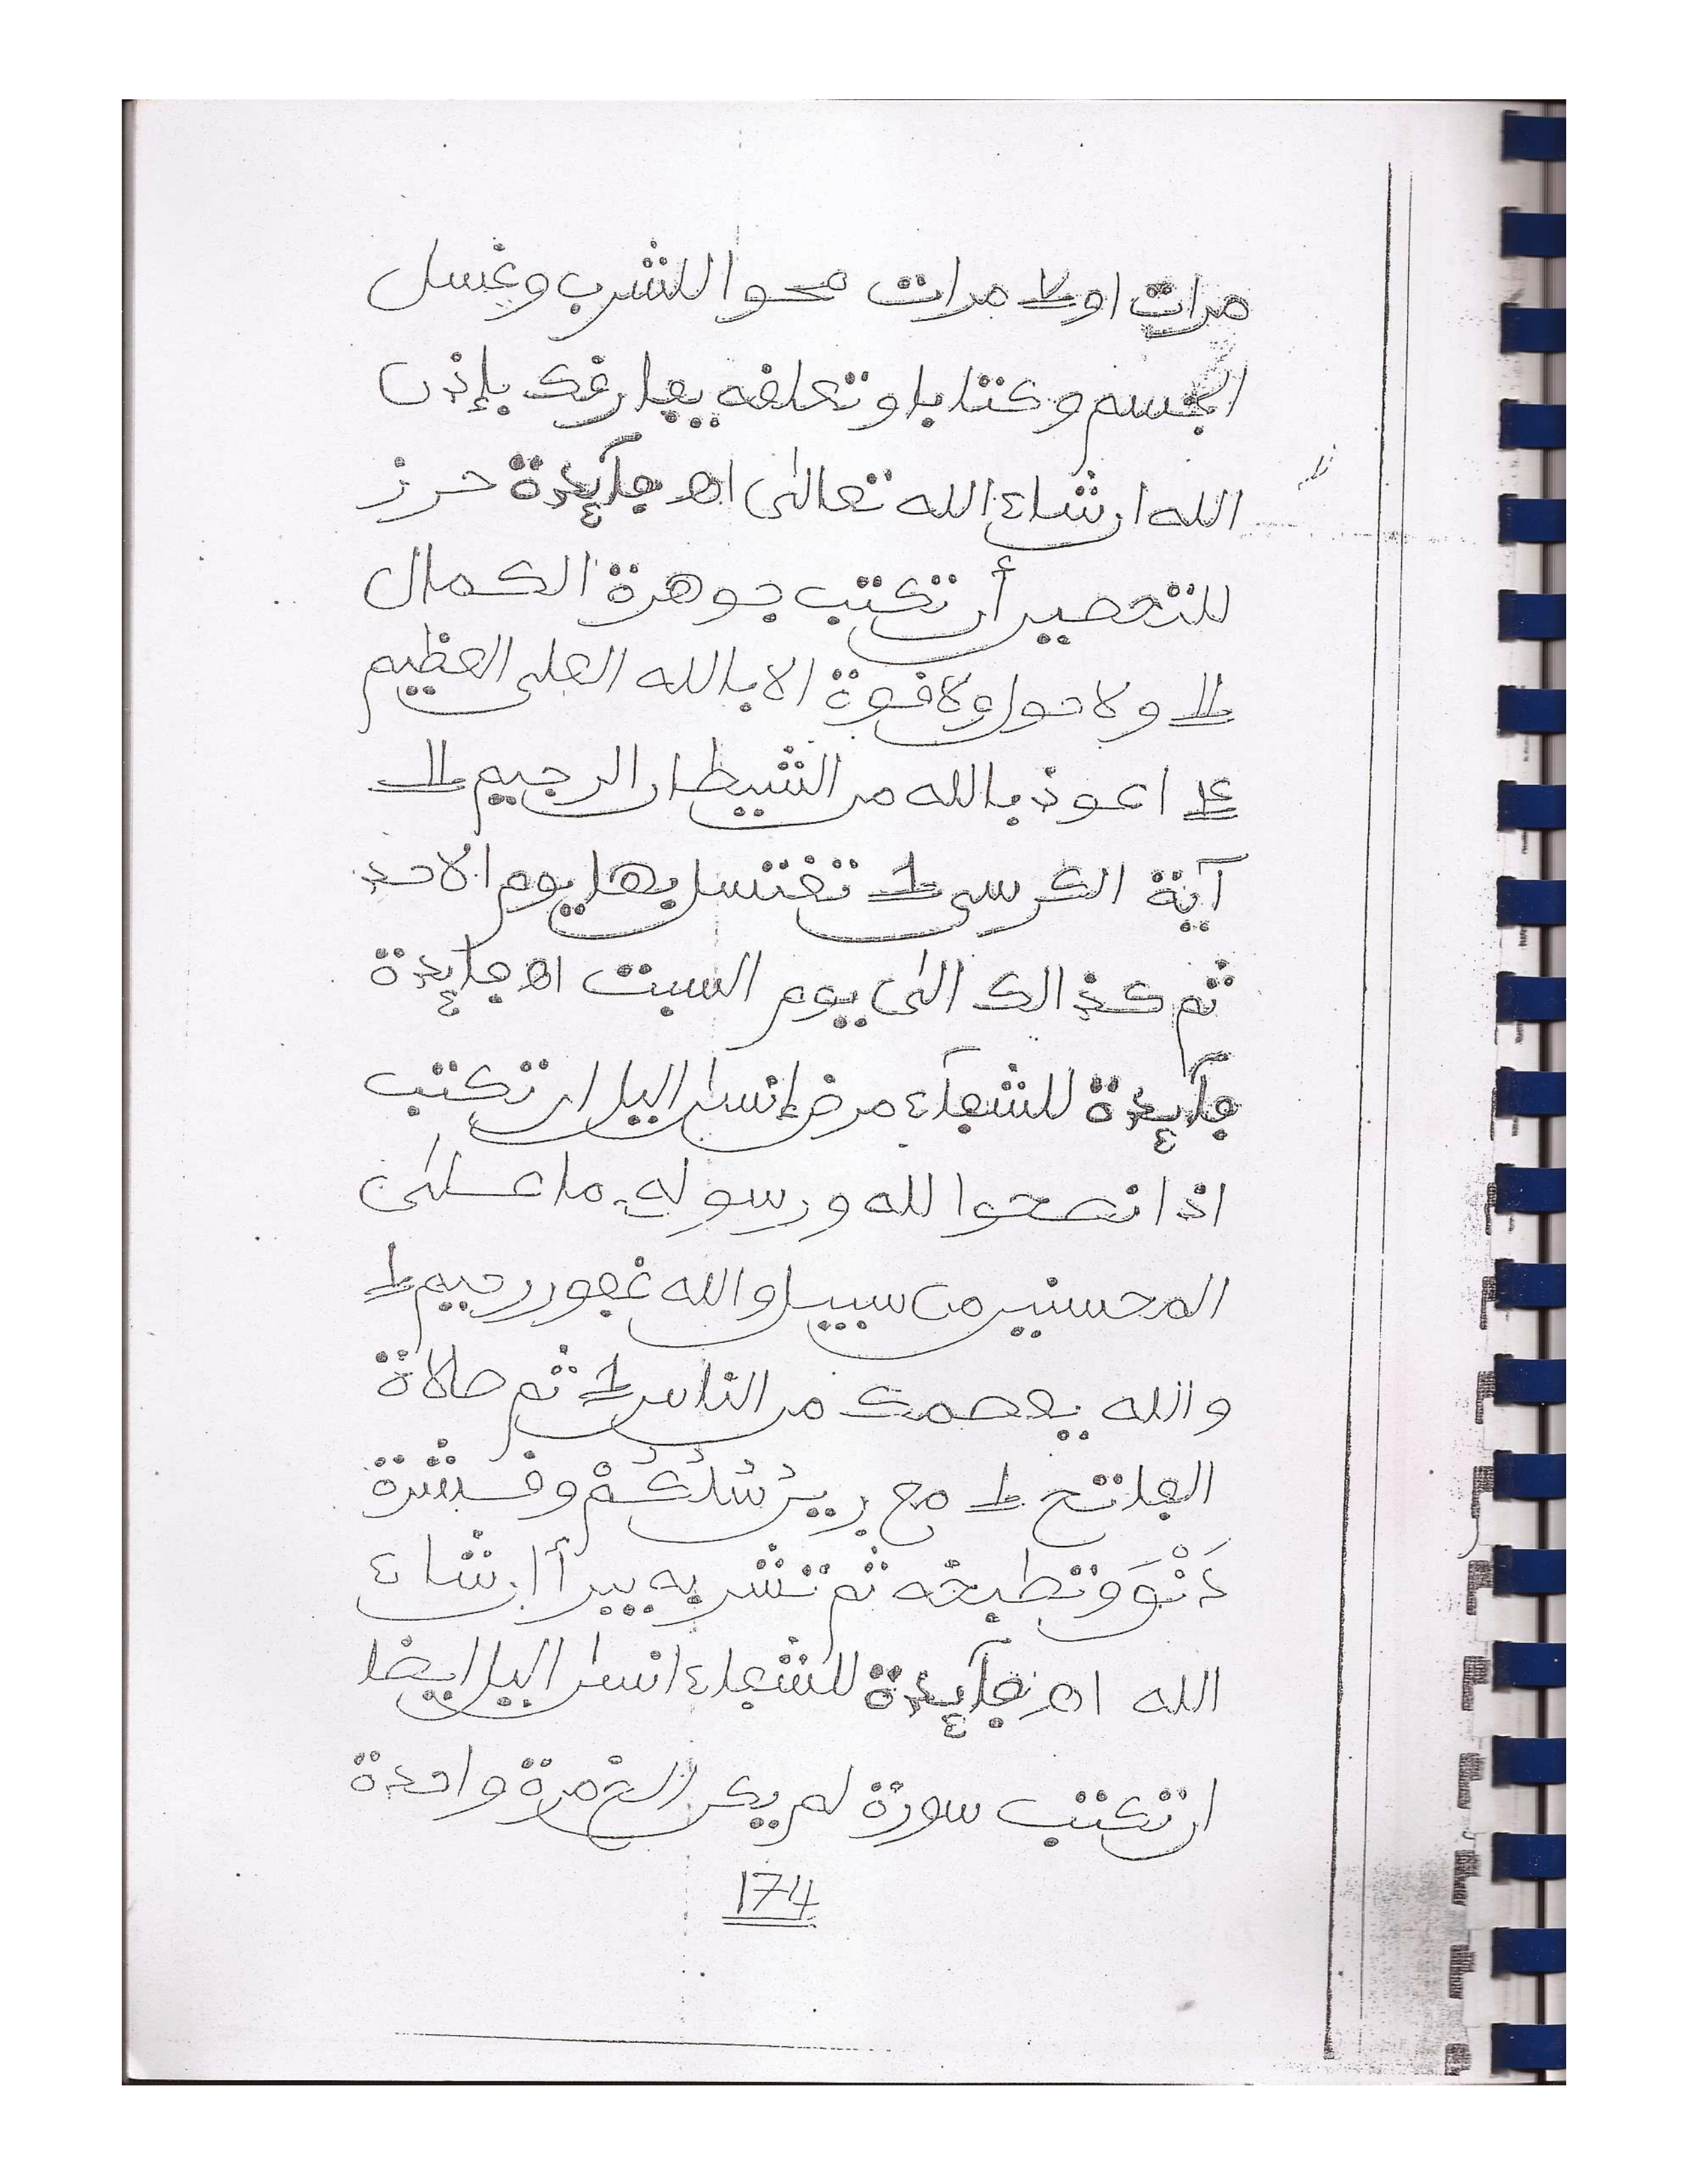 مرات او ٧ مرات محوا للشرب وغسل
الجسم وكتابا وتعلقه يفارقك بإذن
الله ان شاء الله تعالى اھ فآيدة حرز
للتحصين أن تكتب جوهرة الكمال
11 ولا حول ولا قوة الا بالله العلى العظيم
14 اعوذ بالله من الشيطان الرجيم 11
آية الكرسى 1 تغتسل بها يوم الاحد
ثم كذالك الى يوم السبت اھ فايدة
فآيدة للشفآء من ضر إنس ان تكتب
اذا نصحوا لله ورسوله ما على
المحسنين من سبيل والله غفور رحيم 1
والله يعصمك من الناس 1 ثم صلاة
الفاتح 1 مع وقشرة
دَنْوَ وتطبخه ثم تشربه يبرأ ان شاء
الله اھ فآيدة للشفاء ايضا
ان تكتب سورة لم يكن الخ مرة واحدة
174